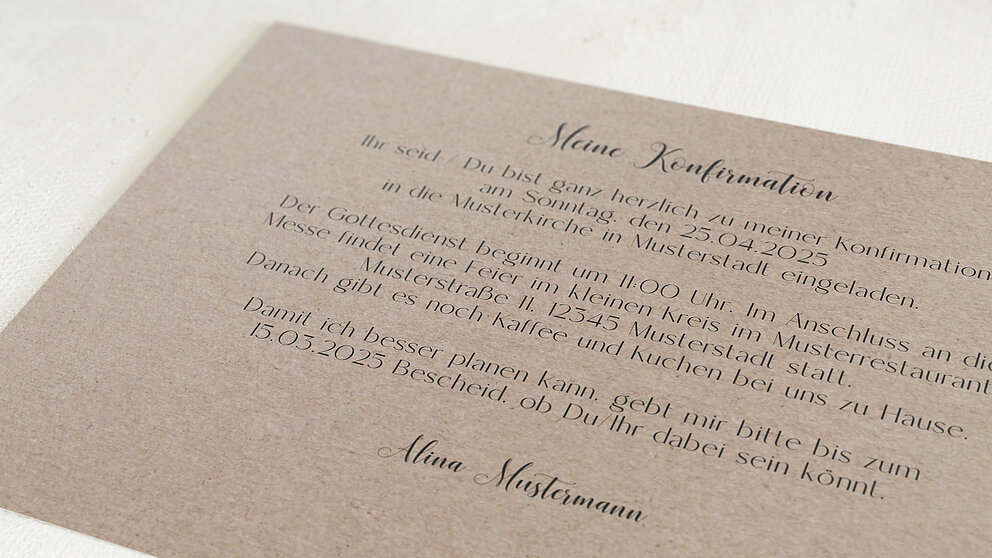 Meine Konfirmation
Ihr seid / Du bist ganz herzlich zu meiner Konfirmation
am Sonntag, den 25.04.2025
in die Musterkirche in Musterstadt eingeladen.
Der Gottesdienst beginnt um 11:00 Uhr. Im Anschluss an die
Messe findet eine Feier im kleinen Kreis im Musterrestaurant
Musterstraße 11, 12345 Musterstadt statt.
Danach gibt es noch Kaffee und Kuchen bei uns zu Hause.
Damit ich besser planen kann, gebt mir bitte bis zum
15.03.2025 Bescheid, ob Du/Ihr dabei sein könnt.
Alina Mustermann